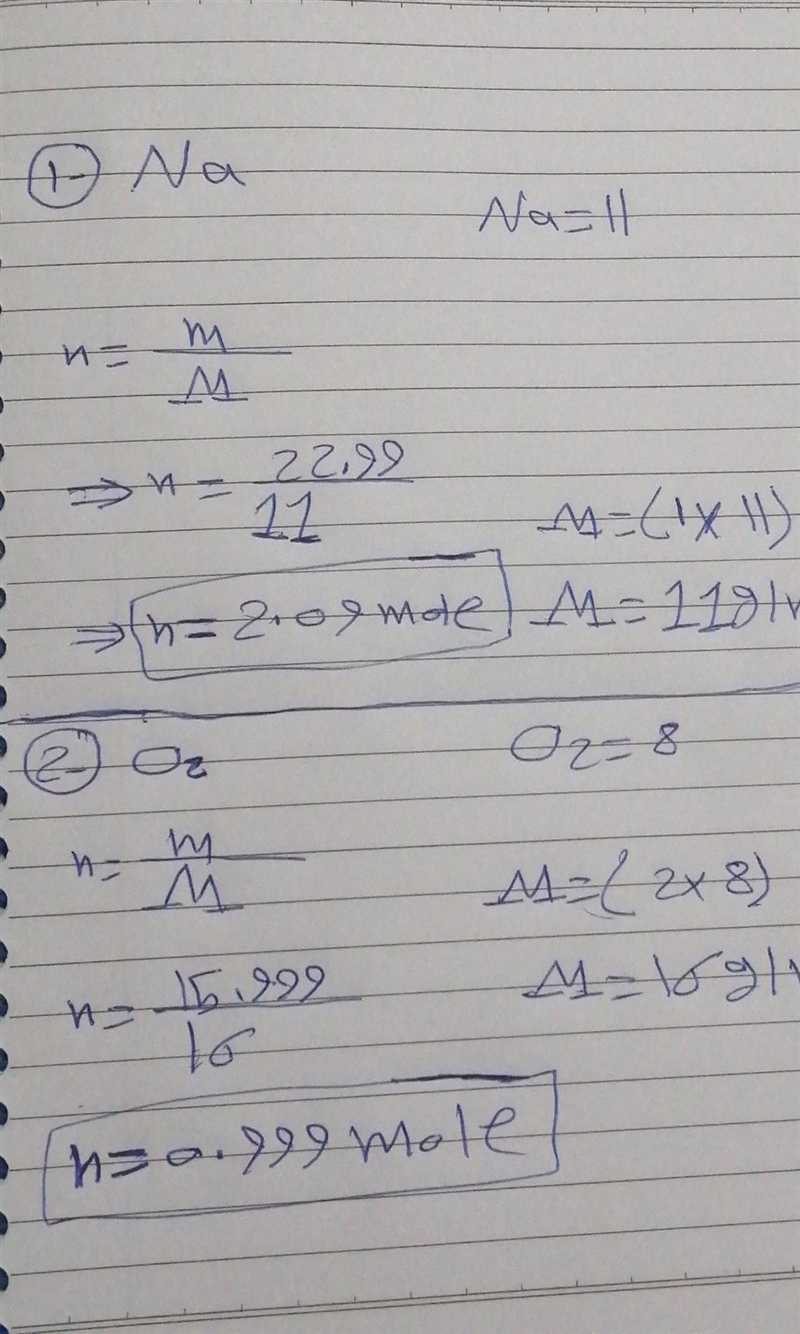 1- Na
Na = 11
n = m / M
⇒ n = 22.99 / 11
M = (1 x 11)
⇒ n = 2.09 mole
M = 11 g/
2- O₂
O₂ = 8
n = m / M
M = ( 2 x 8)
n = 15.999 / 16
M = 16 g/
n = 0.999 mole